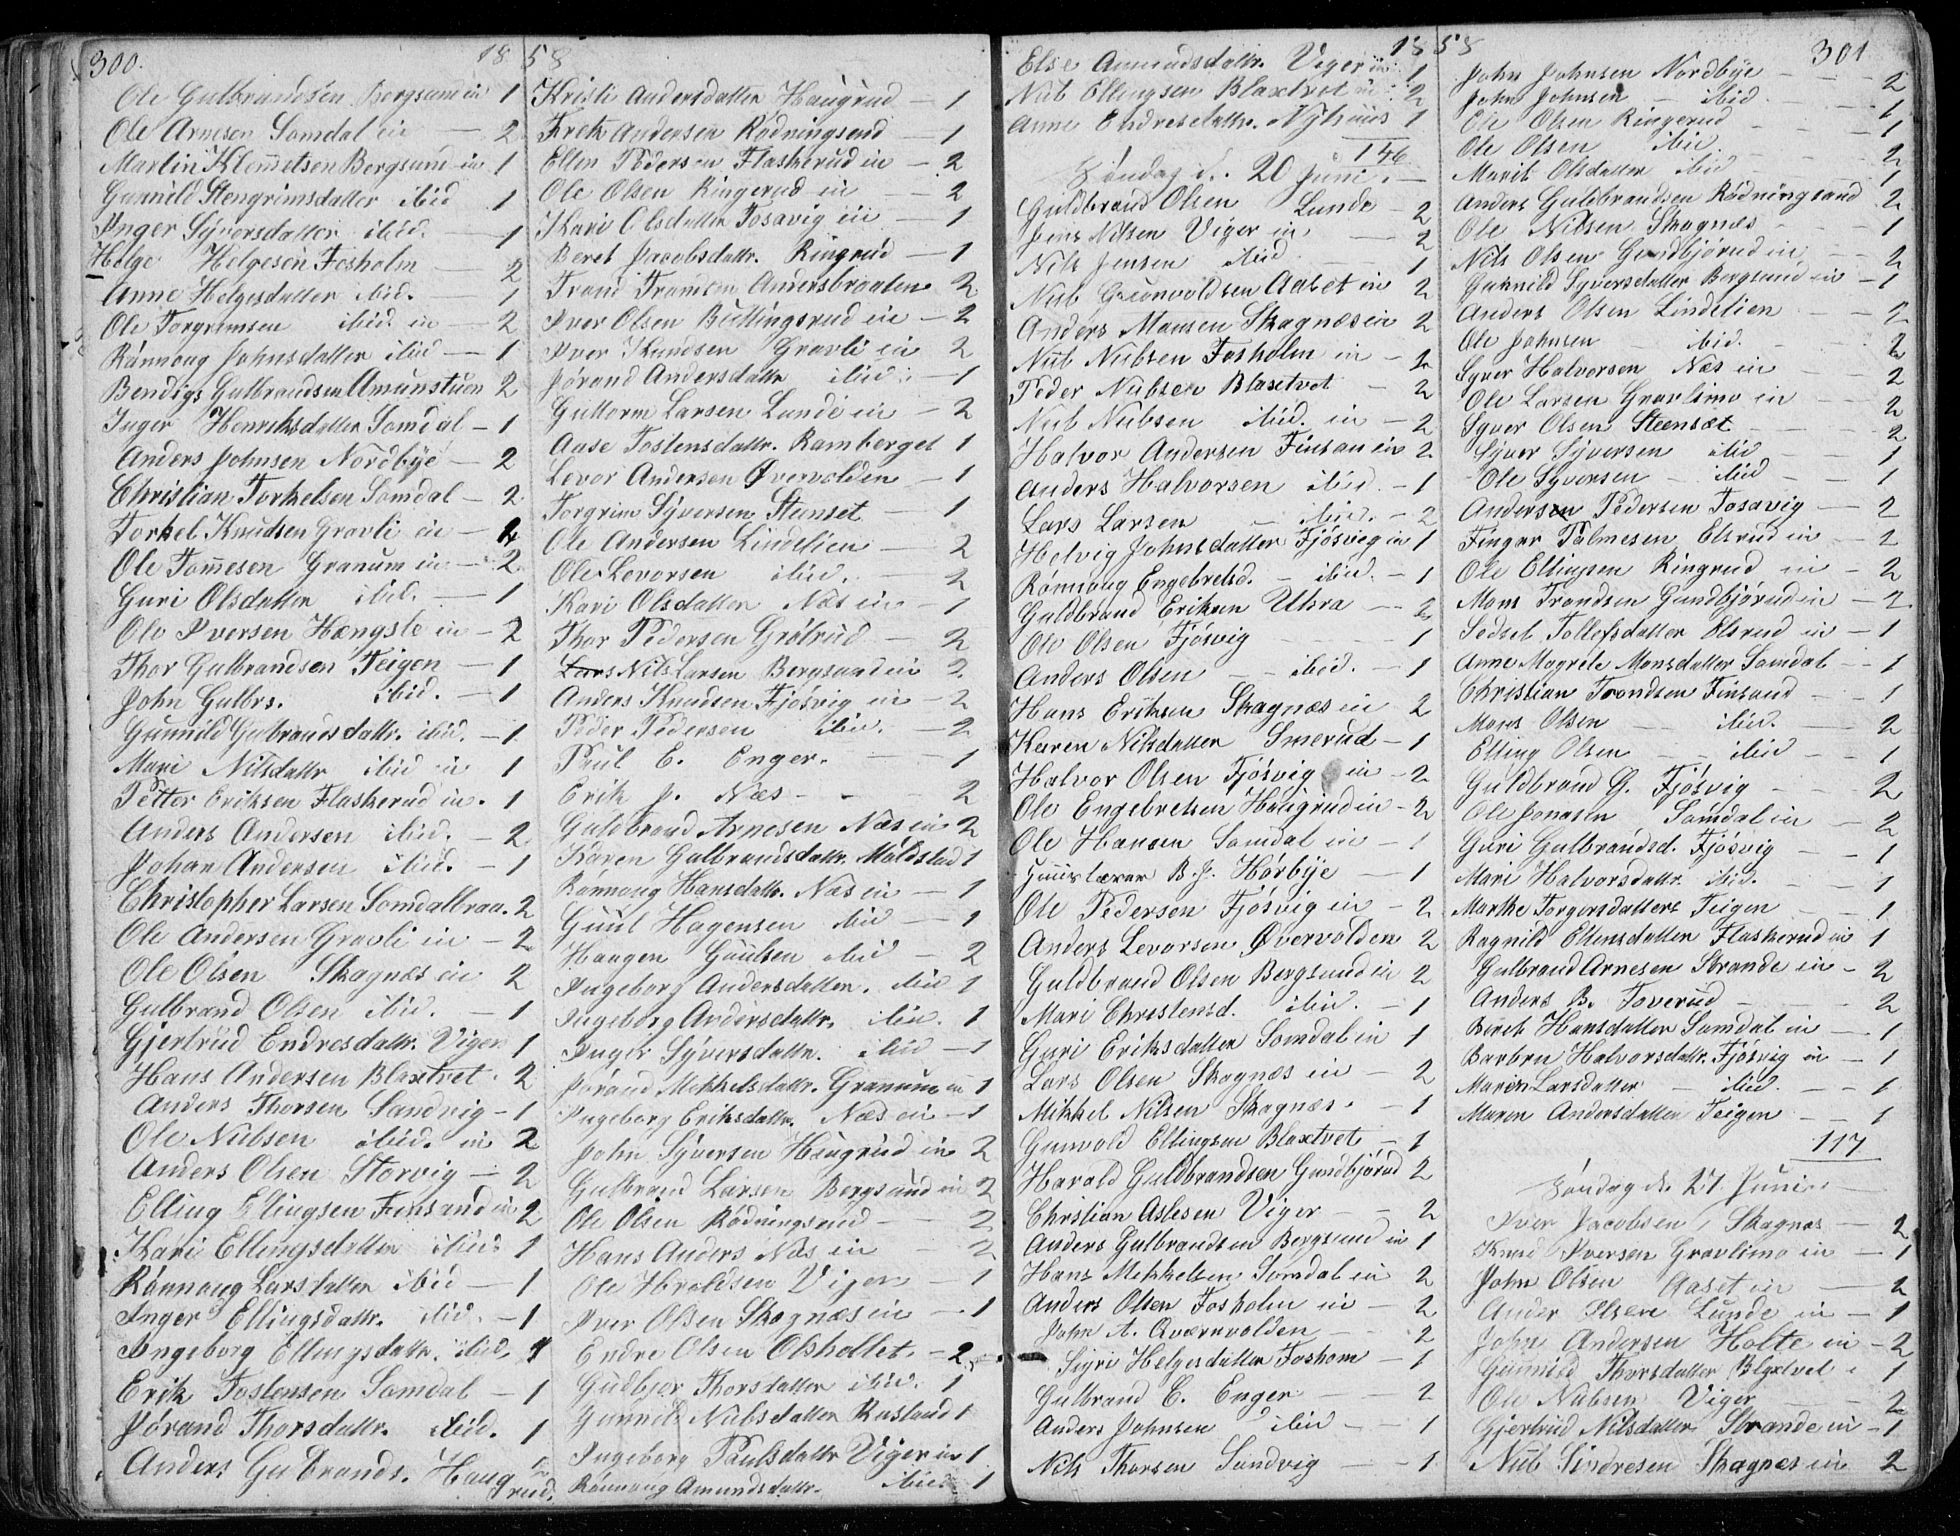 300.
1858
Ole Gulbrandsen Bergsund in 1
Ole Arnesen Somdal in — 2
Martin Klemmetsen Bergsund in 1
Gunnild Stengrimsdatter ibid 1
Inger Syversdatter ibid. — 1
Helge Helgesen Fosholm — 2
Anne Helgesdatter ibid. — 1
Ole Torgrimsen ibid. in — 2
Rønnoug Johnsdatter ibid — 1
Bendigs Gulbrandsen Amunstuen 2
Inger Henriksdatter Somdal — 1
Anders Johnsen Nordbye — 2
Christian Torkelsen Somdal — 2
Torkel Knudsen Gravli in — 2
Ole Tommesen Granum in — 2
Guri Olsdatter ibid. — 1
Ole Iversen Hængsle in — 2
Thor Gulbrandsen Teigen — 1
John Gulbrs. ibid. — 1
Gunnild Gulbrandsdattr. ibid. — 1
Mari Nilsdattr ibid in 1
Petter Eriksen Flaskerud in. 1
Anders Andersen ibid. — 2
Johan Andersen ibid. — 1
Christopher Larsen Somdalbraa. 2
Ole Andersen Gravli in — 2
Ole Olsen Skagnæs in 2
Gulbrand Olsen ibid. — 1
Gjertrud Endresdattr. Viger 1
Hans Andersen Blaxtvet. 2
Anders Thorsen Sandvig — 1
Ole Nubsen ibid. in 2
Anders Olsen Storvig — 2
Elling Ellingsen Finsand in 2
Kari Ellingsdatter ibid. 1
Rønnoug Larsdatter ibid — 1
Inger Ellingsdattr. ibid. — 1
Ingeborg Ellingsdattr. ibid. 1
Erik Tostensen Somdal — 1
Jørand Thorsdattr. ibid. 1
Anders Gulbrands. Haugrud. in
Kristi Andersdatter Haugrud — 1
Fretz Andersen Rødningsand — 1
Ellen Pedersen Flaskerud in — 2
Ole Olsen Ringerud in — 2
Kari Olsdatter Tosavig in — 1
Beret Jacobsdattr. Ringrud — 1
Trond Tronsen Andersbraaten 2
Iver Olsen Buttingsrud in — 2
Iver Knudsen Gravli in — 2
Jørand Andersdattr ibid. — 1
Guttorm Larsen Lunde in — 2
Aase Tostensdattr. Ramberget 1
Levor Andersen Øvervolden — 1
Torgrim Syversen Steenset — 1
Ole Andersen Lindelien — 2
Ole Levorsen ibid. — 2
Kari Olsdatter Næs in — 1
Thor Pedersen Grøtrud — 2
Lars Nils Larsen Bergsund in 2
Anders Knudsen Fjøsvig in — 2
Peder Pedersen ibid. — 2
Paul E. Enger. — 1
Erik J. Næs — 2
Guldbrand Arnesen Næs in 2
Karen Gulbrandsdattr. Moldstad 1
Rønnoug Hansdattr. Næs in — 1
Guul Hagensen ibid — 1
Haagen Guulsen ibid — 2
Ingeborg Andersdatter. ibid 1
Ingeborg Andersdattr. ibid. 1
Inger Syversdattr. ibid — 1
Jørand Mekkelsdattr. Granum in 1
Ingeborg Eriksdattr. Næs in — 1
John Syversen Haugrud in 2
Gulbrand Larsen Bergsund in 2
Ole Olsen Rødningsand — 2
Hans Anders Næs in — 2
Ole Hroldsen Viger — 1
Iver Olsen Skagnæs in — 1
Endre Olsen Olshollet. — 2
Gudbjør Thorsdatter ibid. 1
Gunnild Nubsdatter Rusland 1
Ingeborg Paulsdattr Viger in 1
Rønnoug Amundsdattr. ibid. — 1
1858
301
Else Amundsdattr. Viger in 1
Nub Ellingsen Blaxtvet in 2
Anne Endresdattr. Nyhuus 1
146
Søndag d. 20 Juni.
Guldbrand Olsen Lunde 2
Jens Nilsen Viger in — 2
Nils Jensen ibid — 1
Nub Gunvoldsen Aaset in 2
Anders Monsen Skagnæs in 2
Nub Nubsen Fosholm in — 2
Peder Nubsen Blaxtvet — 2
Nub Nubsen ibid. in — 2
Halvor Andersen Finsan in 2
Anders Halvorsen ibid. — 1
Lars Larsen — ibid. — 2
Helvig Johnsdatter Fjøsvig in 1
Rønnoug Engebretsd. — ibid. — 1
Guldbrand Eriksen Uhra — 2
Ole Olsen Fjøsvig — 1
Anders Olsen — ibid. — 1
Hans Eriksen Skagnæs in 2
Karen Nilsdatter Smerud — 1
Halvor Olsen Fjøsvig in — 2
Ole Engebretsen Haugrud in — 2
Ole Hansen Somdal in — 1
B. J. Hørbye — 1
Ole Pedersen Fjøsvig in — 2
Anders Levorsen Øvervolden 2
Guldbrand Olsen Bergsund in 2
Mari Christensd. ibid. — 1
Guri Eriksdatter Somdal in 1
Lars Olsen Skagnæs in — 2
Mikkel Nilsen Skagnæs. — 1
Gunvold Ellingsen Blaxtvet — 1
Harald Guldbrandsen Gundbjørud 2
Christian Aslesen Viger — 2
Anders Gulbrandsen Bergsund in 1
Hans Mekkelsen Somdal in 2
Anders Olsen Fosholm in — 2
John A. Qværnvolden — 2
Sigri Helgesdatter Foshom — 1
Gulbrand E. Enger — 2
Anders Johnsen ibid — 1
Nils Thorsen Sandvig — 1
John Johnsen Nordbye — 2
John Johnsen — ibid. — 1
Ole Olsen Ringerud — 1
Ole Olsen ibid. — 2
Marit Olsdatter ibid — 1
Anders Guldbrandsen Rødningsand 2
Ole Nilsen Skagnæs — 1
Nils Olsen Gundbjørud in — 2
Gunnild Syversdatter Bergsund in — 1
Anders Olsen Lindelien — 2
Ole Johnsen — ibid. — 2
Syver Halvorsen Næs in — 2
Ole Larsen Gravlimo in — 2
Syver Olsen Steenset — 2
Syver Syversen ibid — 1
Ole Syversen — ibid — 1
Andersen Pedersen Tosavig — 2
Fingar Palmesen Elsrud in — 2
Ole Ellingsen Ringrud in — 2
Mons Trondsen Gundbjørud in — 2
Sedsel Tollefsdatter Elsrud in — 1
Anne Magrete Monsdatter Somdal — 1
Christian Trondsen Finsand — 1
Mons Olsen — ibid. — 2
Elling Olsen — ibid — 1
Guldbrand G. Fjøsvig — 2
Ole Jonasen Somdal in — 2
Guri Gulbrandsd. Fjøsvig — 1
Mari Halvorsdattr. ibid. — 1
Marthe Torgersdatters Teigen — 1
Ragnild Ellensdatter Flaskerud in 1
Gulbrand Arnesen Strande in — 2
Anders B. Toverud — 2
Birit Hansdatter Somdal in — 1
Barbru Halvorsdattr. Fjøsvig in — 1
Maren Larsdatter — ibid. — 1
Maren Andersdatter Teigen — 1
117
Søndag d. 27. Juni.
Iver Jacobsen Skagnæs — 2
Knud Iversen Gravlimo in — 1
John Olsen Aaset in — 2
Ander Olsen Lunde in — 1
John Andersen Holte in — 2
Gunnild Thorsdatter Blaxtvet 1
Ole Nubsen Viger — 2
Gjertrud Nilsdatter Strande in — 1
Nub Sindresen Skagnæs in 2